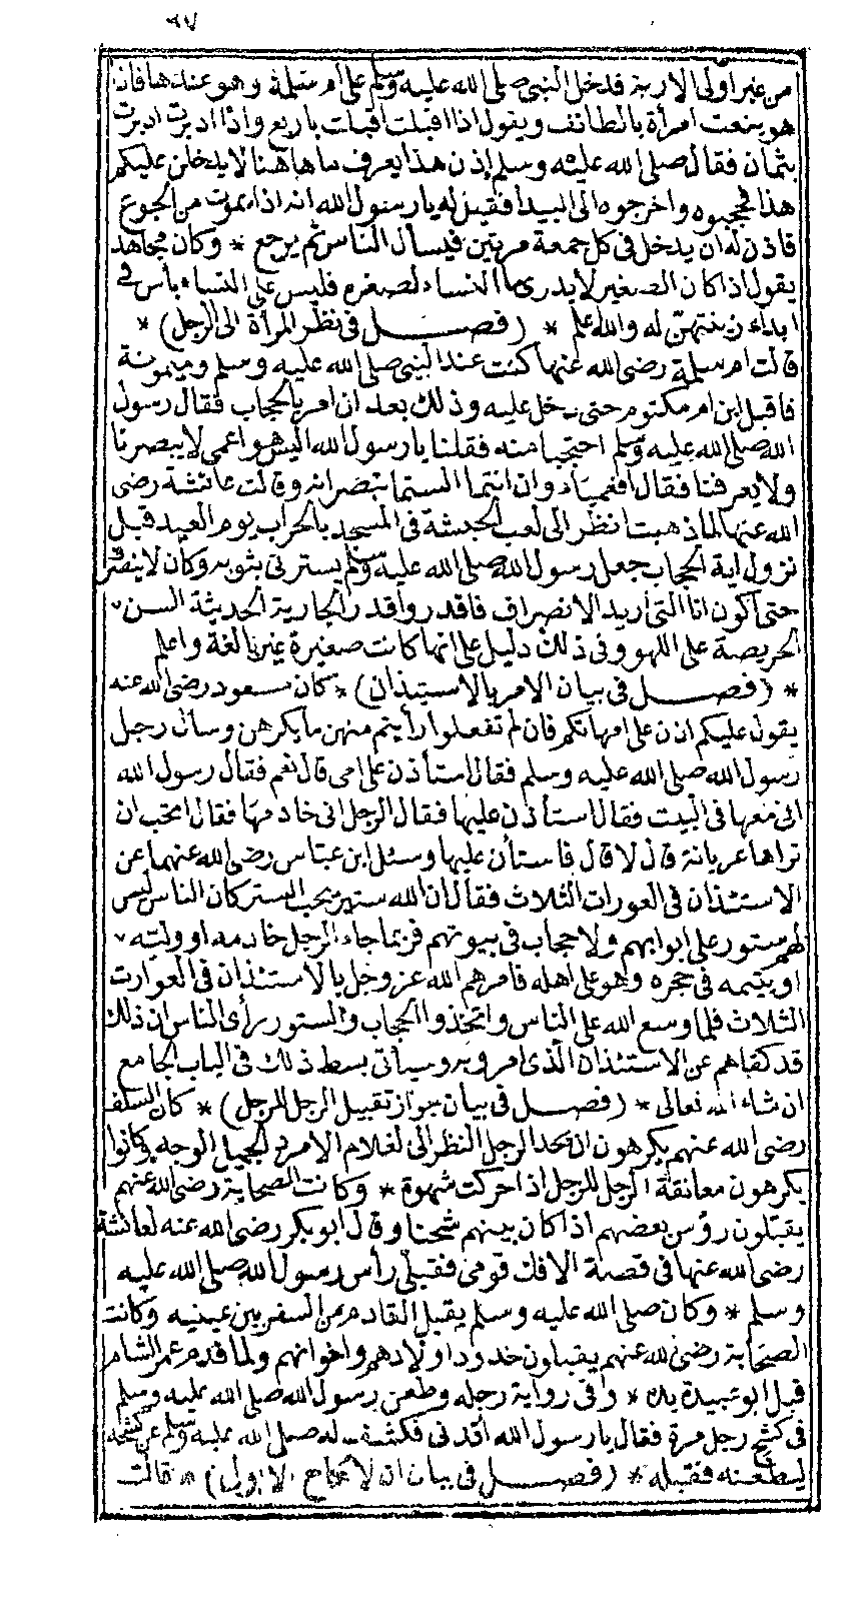 ٨٧
من غير اولى الاربة فدخل النبى صلى الله عليه وسلم على ام سلمة وهو عندها فاذا
هو ينعت امرأة بالطائف ويقول اذا اقبلت اقبلت باربع واذا ادبرت ادبرت
بثمان فقال صلى الله عليه وسلم إذن هذا يعرف ما هاهنا لا يدخلن عليكم
هذا فحجبوه واخرجوه الى البيدا فقيل له يا رسول الله انه اذا يموت من الجوع
فاذن له ان يدخل فى كل جمعة مرتين فيسأل الناس ثم يرجع * وكان مجاهد
يقول اذا كان الصغير لا يدرى ما النساء لصغره فليس على النساء بأس فى
ابداء زينتهن له والله اعلم * (فصــل فى نظر المرأة الى الرجل) *
قالت ام سلمة رضى الله عنها كنت عند النبى صلى الله عليه وسلم وميمونة
فاقبل ابن ام مكتوم حتى دخل عليه وذلك بعد ان امر بالحجاب فقال رسول
الله صلى الله عليه وسلم احتجبا منه فقلنا يا رسول الله اليس هو اعمى لا يبصرنا
ولا يعرفنا فقال افعمياوان انتما الستما تبصرانه وقالت عائشة رضى
الله عنها لما ذهبت انظر الى لعب الحبشة فى المسجد بالحراب يوم العيد قبل
نزول اية الحجاب جعل رسول الله صلى الله عليه وسلم يسترنى بثوبه وكان لا ينصرف
حتى اكون انا التى اريد الانصراف فاقدروا قدر الجارية الحديثة السن
الحريصة على اللهو وفى ذلك دليل على انها كانت صغيرة غير بالغة واعلم
* (فصــل فى بيان الامر بالاستيذان) * كان مسعود رضى الله عنه
يقول عليكم اذن على امهاتكم فان لم تفعلوا رأيتم منهن ما يكرهن وسأل رجل
رسول الله صلى الله عليه وسلم فقال استأذن على امى قال نعم فقال رسول الله
انى معها فى البيت فقال استأذن عليها فقال الرجل انى خادمها فقال اتحب ان
تراها عريانة قال لا قال فاستأن عليها وسئل ابن عباس رضى الله عنهما عن
الاستئذان فى العورات الثلاث فقال ان الله ستير يحب الستر كان الناس ليس
لهم ستور على ابوابهم ولا حجاب فى بيوتهم فربما جاء الرجل خادمه او ولده
او يتيمه فى حجره وهو على اهله فامرهم الله عز وجل بالاستئذان فى العوارت
الثلاث فلما وسع الله على الناس واتخذوا الحجاب والستور رأى الناس ان ذلك
قد كفاهم عن الاستئذان الذى امروا به وسيأتى بسط ذلك فى الباب الجامع
ان شاء الله تعالى * (فصــل فى بيان جواز تقبيل الرجل للرجل) * كان السلف
رضى الله عنهم يكرهون ان يحد الرجل النظر الى الغلام الامرد الجميل الوجه وكانوا
يكرهون معانقة الرجل للرجل اذا حركت شهوة * وكانت الصحابة رضى الله عنهم
يقبلون رؤس بعضهم اذا كان بينهم شحنا وقال ابو بكر رضى الله عنه لعائشة
رضى الله عنها فى قصة الافك قومى فقبلى رأس رسول الله صلى الله عليه
وسلم * وكان صلى الله عليه وسلم يقبل القادم من السفر بين عينيه وكانت
الصحابة رضى الله عنهم يقبلون خدود اولادهم واخوانهم ولما قدم عمر الشام
قبل ابو عبيدة يده * وفى رواية رجله وطعن رسول الله صلى الله عليه وسلم
فى كشح رجل مرة فقال يا رسول الله أقدنى فكشف له صلى الله عليه وسلم عن كشحه
ليطعنه فقبله * (فصــل فى بيان ان لا نكاح الا بولى) * قالت